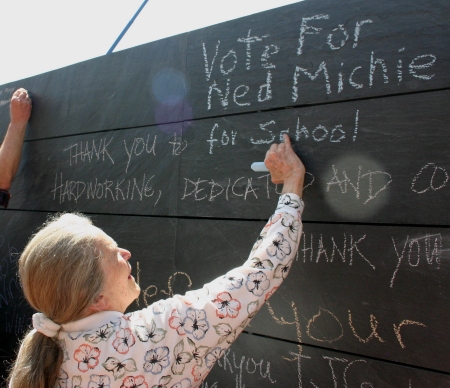 Vote For
Ned Michie
for School
THANK YOU to
HARDWORKING, DEDICATED AND CO
THANK YOU
Your